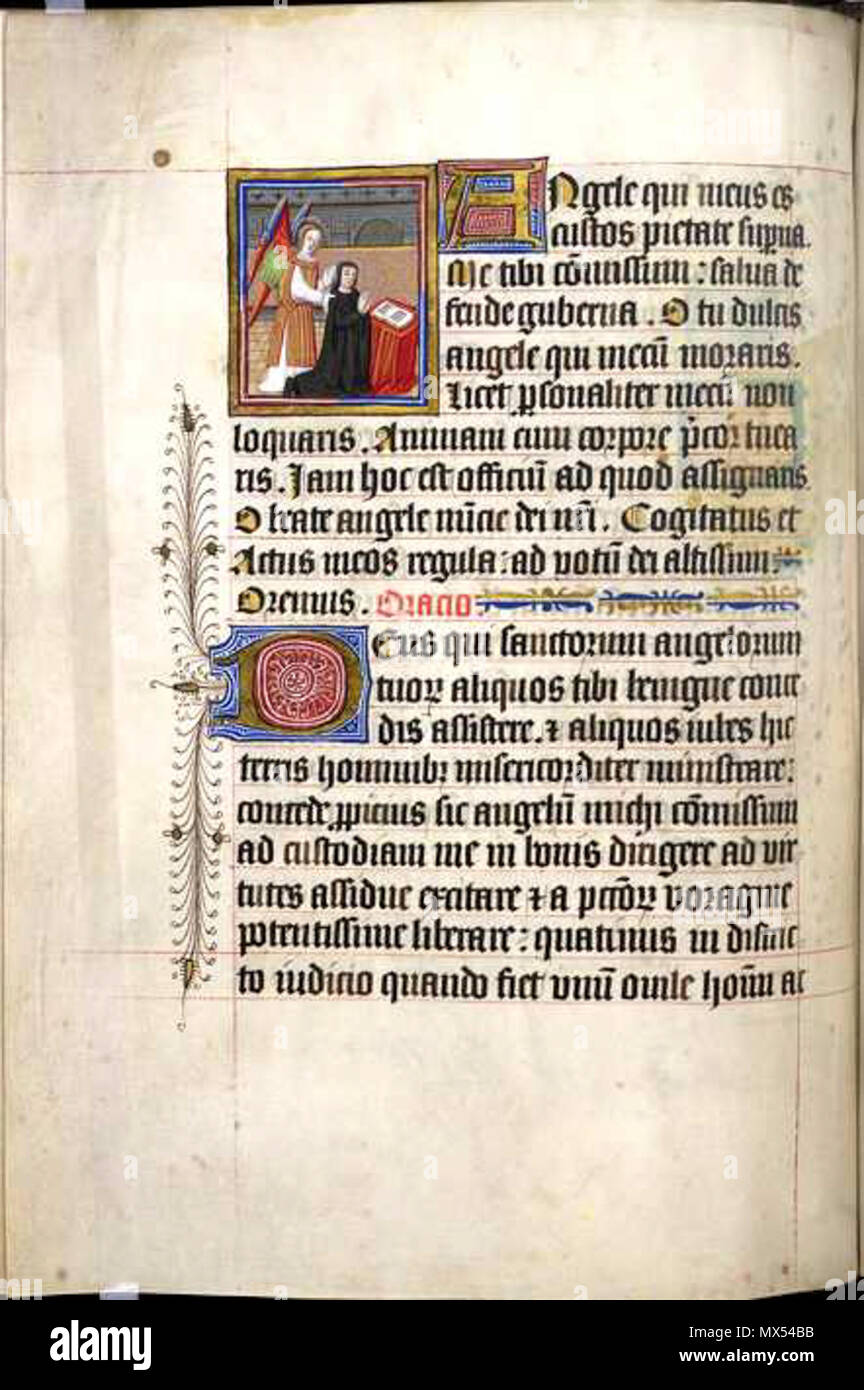 ANgele qui meus es
custos pietate sup̲na.
Me tibi cōmissum : salua de
fende guberna . O tu dulcis
angele qui mecū moraris.
Licet p̲sonaliter mecū non
loquaris . Animam cum corpore p̄cor tuea
ris . Jam hoc est officiū ad quod assignaris
O beate angele nūcie dei nr̄i . Cogitatus et
Actus meos regula : ad votū dei altissimi.
Oremus . Oracio
DEus qui sanctorum angelorum
tuoꝝ aliquos tibi benigne conce
dis assistere . ⁊ aliquos iubes hic
terris hominibꝫ misericorditer ministrare :
concede p̲picius sic angelū michi cōmissum
ad custodiam me in bonis dirigere ad vir
tutes assidue excitare ⁊ a pctōꝝ voragine
potentissime liberare : quatinus in distric
to iudicio quando fiet vnū ouile hoīm ac
alamy
Image ID: MX54BB
www.alamy.com